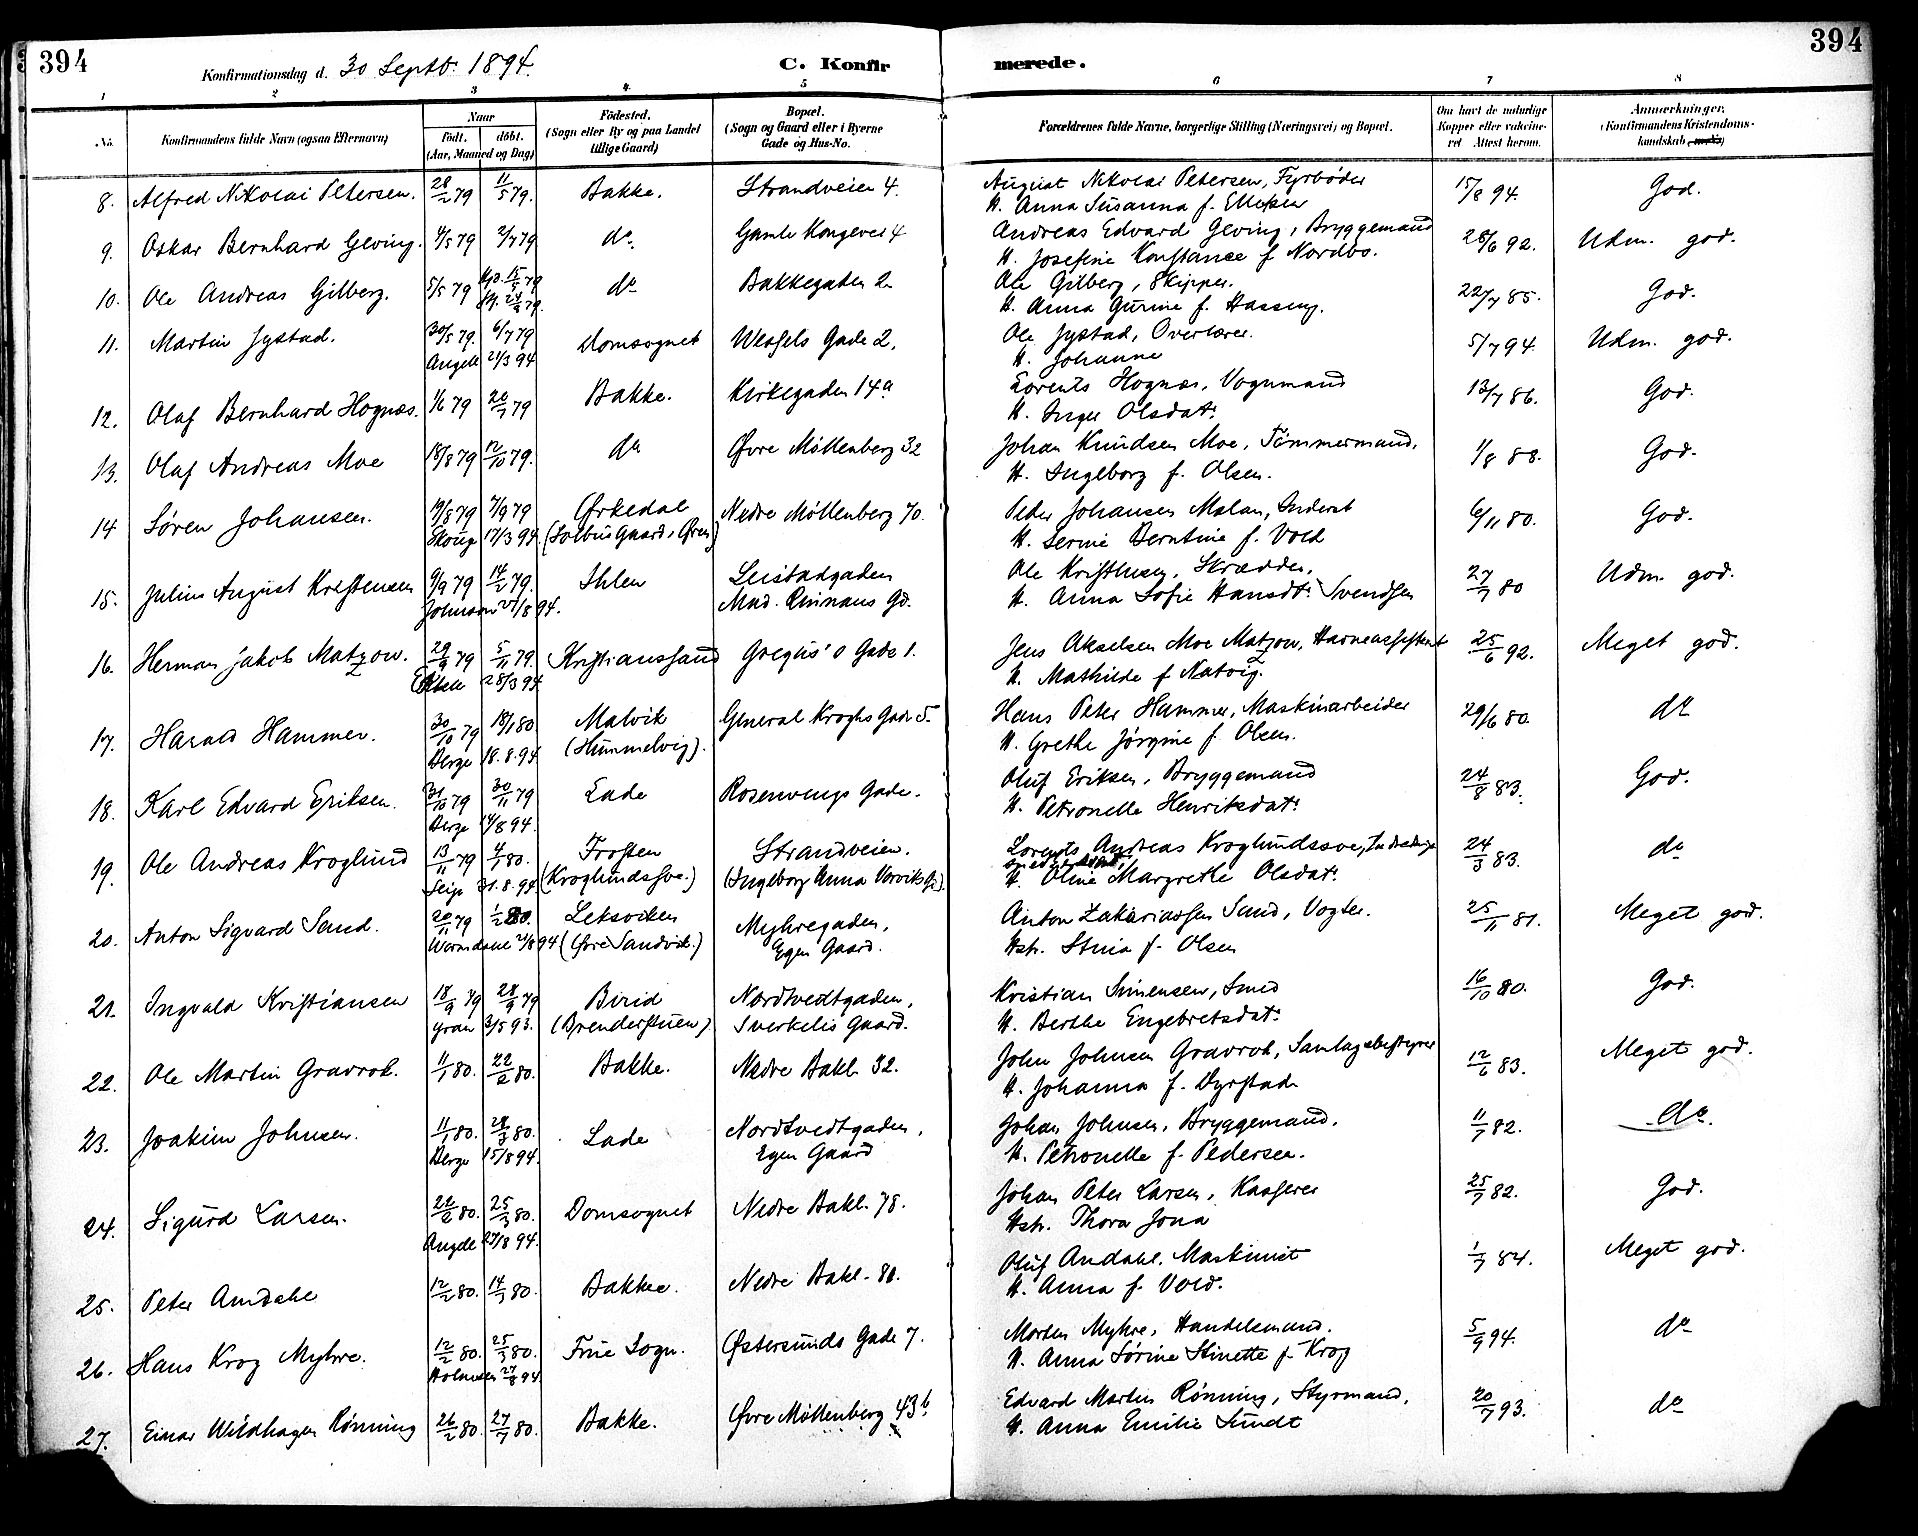 394
Konfirmationsdag d. 30 Septb. 1894.
C. Konfirmerede.
394
1 2 3 4 5 6 7 8
No.
Konfirmandens fulde Navn (ogsaa Efternavn)
Naar
født. døbt.
(Aar, Maaned og Dag)
Fødested.
(Sogn eller By og paa Landet
tillige Gaard)
Bopæl.
(Sogn og Gaard eller i Byerne
Gade og Hus-No.
Forældrenes fulde Navne, borgerlige Stilling (Næringsvei) og Bopæl.
Om havt de naturlige
Kopper eller vakcine-
ret Attest herom.
Anmærkninger.
(Konfirmandens Kristendoms-
kundskab
8. Alfred Nikolai Petersen. 28/2 79 11/5 79. Bakke. Strandveien 4. August Nikolai Petersen, Fyrbøder 15/8 94. God.
H. Anna Susanna f. Ellefsen
9. Oskar Bernhard Geving. 4/5 79 2/7 79 do. Gamle Kongevei 4 Andreas Edvard Geving, Bryggemand 28/6 92. Udm. god.
H. Josefine Konstance f Nordbo.
10. Ole Andreas Gilberg. 5/5 79 15/5 79 do Bakkegaden 2 Ole Gilberg, Skipper. 22/7 85. God.
H. Anna Gurine f. Hassing.
11. Martin Jystad. 30/5 79. 6/7 79 Domsognet Wessels Gade 2. Ole Jystad, Overlærer. 5/7 94. Udm. god.
Angell 21/3 94 H. Johanne
12. Olaf Bernhard Hognæs. 1/6 79 20/7 79 Bakke. Kirkegaden 14a Lorents Hognæs, Vognmand 13/7 86. God.
H. Inger Olsdatr.
13. Olaf Andreas Moe 18/8 79 12/10 79. do Øvre Møllenberg 32 Johan Knudsen Moe, Tømmermand. 1/8 88. God.
H. Ingeborg f. Olsen.
14 Søren Johansen. 19/8 79 7/9 79 Ørkedal Nedre Møllenberg 70. Peder Johansen Malan, Inderst 6/11 80. God.
Skouge 17/3 94. (Solbus Gaard, Øren) H. Serine Berntine f. Vold
15. Julius August Kristensen 9/9 79 14/2 79. Ihlen Leistadgaden Ole Kristensen, Skrædder. 27/7 80 Udm. god.
Johnson 21/8 94. Mad. Rinnans Gd. H. Anna Sofie Hansdtr. Svendsen
16. Herman Jakob Matzow. 29/9 79 5/11 79. Kristianssand Gregus' Gade 1. Jens Akselsen Moe Matzow, Havneassistent 25/6 92. Meget god.
28/3 94 H. Mathilde f Natvig.
17. Harald Hammer. 30/10 79 18/1 80 Malvik General Kroghs Gade 5. Hans Peter Hammer, Maskinarbeider 29/6 80. do
Berge 18.8.94. (Hummelvig). H. Grethe Jørgine f. Olsen.
18. Karl Edvard Eriksen. 31/10 79 30/11 79 Lade Rosenvings Gade. Oluf Eriksen, Bryggemand 24/8 83. God.
Berge 14/8 94. H. Petronelle Henriksdatr.
19. Ole Andreas Kroglund 13/11 79 4/1 80. Frosten Strandveien. Lorents Andreas Kroglundssve, 24/3 83. do
31.8.94. (Kroglundssve.) (Ingeborg Anna Vorviks Gd). H. Oline Margrethe Olsdatr.
20. Anton Sigvard Sand. 20/11 79 1/2 80. Leksviken Myhregaden, Anton Zakariassen Sand, Vogter. 25/11 81. Meget god.
Warmdahl 2/8 94 (Øvre Sandvik.) Egen Gaard. Hstr. Stina f. Olsen
21. Ingvald Kristiansen 18/9 79 28/9 79 Birid Nordtvedtgaden, Kristian Simensen, Smed 16/10 80. God.
Gran 3/5 93. (Brenderstuen) Sverkelis Gaard. H. Berthe Engebretsdatr.
22. Ole Martin Gravrok. 11/1 80. 22/2 80. Bakke. Nedre Bakl. 32. John Johnsen Gravrok, Samlagsbestyrer 12/6 83. Meget god.
H. Johanna f. Dyrstad
23. Joakim Johnsen. 11/1 80. 28/3 80. Lade Nordtvedtgaden, Johan Johnsen, Bryggemand. 11/7 82. do.
Berge 15/8 94. Egen Gaard H. Petronelle f. Pedersen.
24. Sigurd Larsen. 22/2 80. 25/3 80. Domsognet Nedre Bakl. 78. Johan Peter Larsen, Kasserer 25/7 82. God.
Angell 27/8 94. Hstr. Thora Jona
25. Peter Amdahl 12/2 80. 14/3 80. Bakke. Nedre Bakl. 80. Oluf Amdahl, Maskinist 1/7 84. Meget god.
H. Anna f. Vold.
26. Hans Krog Myhre. 12/2 80. 25/3 80. Frue Sogn. Østersunds Gade 7. Morten Myhre, Handelsmand. 5/9 94. do
Holmsen 27/8 94. H. Anna Sørine Stinette f. Krog
27. Einar Wildhagen Rønning 26/2 80. 27/7 80. Bakke. Øvre Møllenberg 43b. Edvard Martin Rønning, Styrmand. 20/7 93. do
H. Anna Emilie Sundt